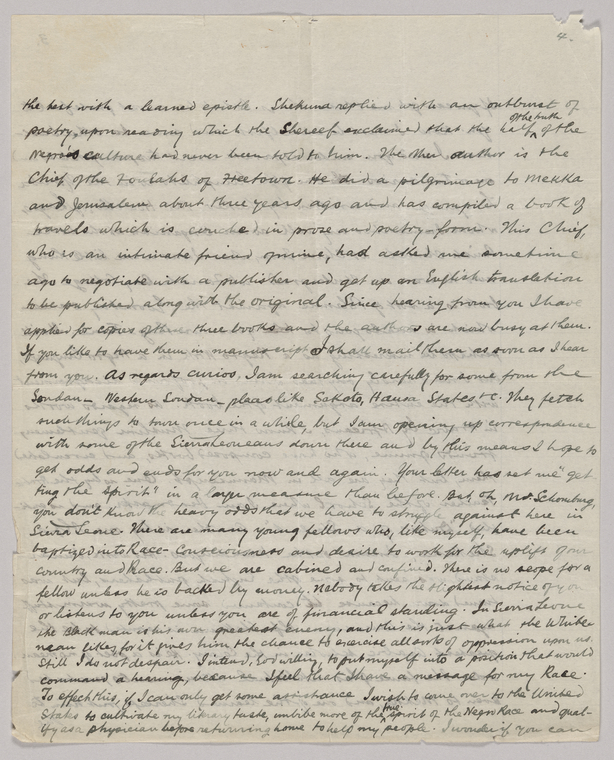 4.
the text with a learned epistle. Shekuna replied with an outburst of
poetry, upon reading which the Shereef exclaimed that the half of the truth of the
Negro's culture had never been told to him. The other author is the
Chief of the Foulahs of Freetown. He did a pilgrimage to Mekka
and Jerusalem about three years ago and has compiled a book of
travels which is couched in prose and poetry-form. This Chief,
who is an intimate friend of mine, had asked me sometime
ago to negotiate with a publisher and get up an English translation
to be published along with the original. Since hearing from you I have
applied for copies of these three books and the authors are now busy at them.
If you like to have them in manuscript I shall mail them as soon as I hear
from you. As regards curios, I am searching carefully for some from the
Soudan - Western Soudan - places like Sakoto, Hausa States &c. They fetch
such things to town once in a while, but I am opening up correspondence
with some of the Sierraleoneans down there and by this means I hope to
get odds and ends for you now and again. Your letter has set me "get
ting the spirit" in a larger measure than before. But oh, Mr. Schomburg,
you don't know the heavy odds that we have to struggle against here in
Sierra Leone. There are many young fellows who, like myself, have been
baptized into Race-Consciousness and desire to work for the uplift of our
country and Race. But we are cabined and confined. There is no scope for a
fellow unless he is backed by money. Nobody takes the slightest notice of you
or listens to you unless you are of financial standing. In Sierra Leone
the Black man is his own greatest enemy, and this is just what the White
man likes, for it gives him the chance to exercise all sorts of oppression upon us.
Still I do not despair. I intend, God willing, to put myself into a position that would
command a hearing, because I feel that I have a message for my Race.
To effect this, if I can only get some assistance I wish to come over to the United
States to cultivate my literary taste, imbibe more of the true spirit of the Negro Race and qual-
ify as a physician before returning home to help my people. I wonder if you can